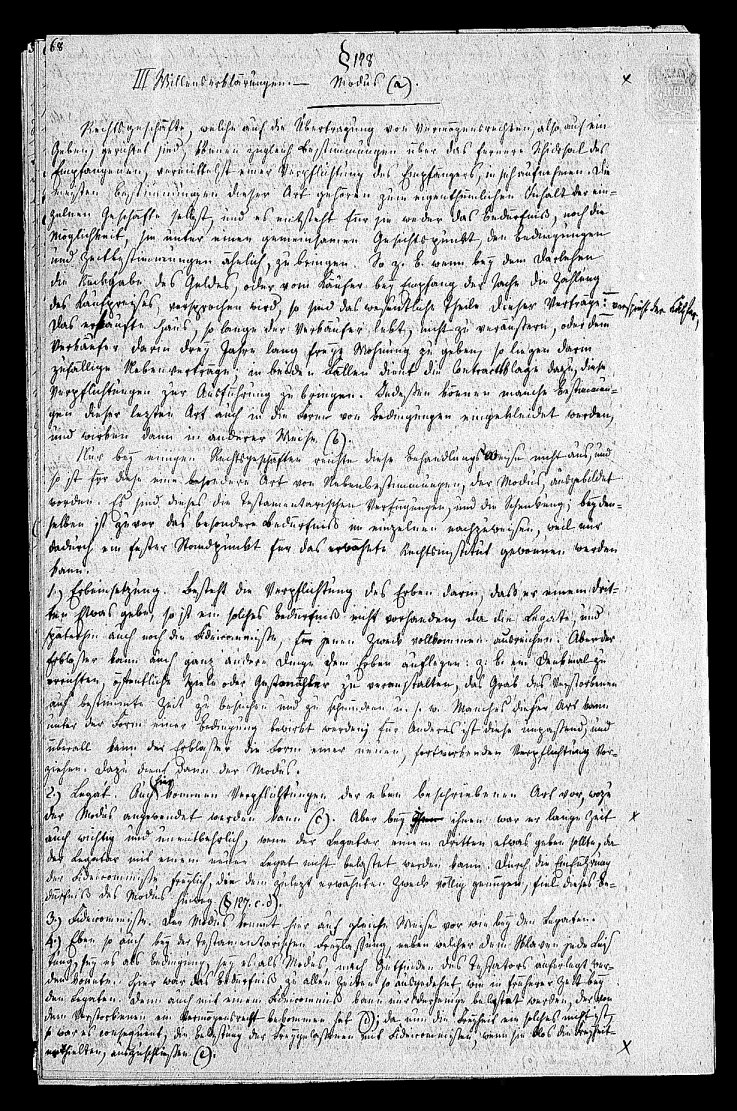 68
§ 128
III Willenserklärungen. — Modus (a).
Rechtsgeschäfte, welche auf die Übertragung von Vermögensrechten, also auf ein
Geben, gerichtet sind, können zugleich Bestimmungen über das fernere Schicksal des
Empfangenen, vermittelst einer Verpflichtung des Empfängers, in sich aufnehmen. Die
meisten Bestimmungen dieser Art gehören zum eigenthümlichen Inhalt der ein=
zelnen Geschäfte selbst, und es entsteht für sie weder das Bedürfniß, noch die
Möglichkeit, sie unter einen gemeinsamen Gesichtspunkt, den Bedingungen
und Zeitbestimmungen ähnlich, zu bringen. So z. B. wenn bey dem Darlehen
die Rückgabe des Geldes, oder vom Käufer bey Empfang der Sache die Zahlung
des Kaufpreises, versprochen wird, so sind das wesentliche Theile dieser Verträge: verspricht der Käufer,
das erkaufte Haus, so lange der Verkäufer lebt, nicht zu veräußern, oder dem
Verkäufer darin drey Jahre lang freye Wohnung zu geben, so liegen darin
zufällige Nebenverträge: in beiden Fällen dient die Contractsklage dazu, diese
Verpflichtungen zur Ausführung zu bringen. Indessen können manche Bestimmun=
gen dieser letzten Art auch in die Form von Bedingungen eingekleidet werden,
und wirken dann in anderer Weise (b).
Nur bey einigen Rechtsgeschäften reichte diese Behandlungsweise nicht aus, und
so ist für diese eine besondere Art von Nebenbestimmungen, der Modus, ausgebildet
worden. Es sind dieses die testamentarischen Verfügungen, und die Schenkung; bey den=
selben ist zuvor das besondere Bedürfniß im einzelnen nachzuweisen, weil nur
dadurch ein fester Standpunkt für das erwähnte Rechtsinstitut gewonnen werden
kann.
1.) Erbeinsetzung. Besteht die Verpflichtung des Erben darin, daß er einem Drit=
ten Etwas gebe, so ist ein solches Bedürfniß nicht vorhanden, da die Legate, und
späterhin auch noch die Fideicommisse, für jenen Zweck vollkommen ausreichen. Aber der
Erblasser kann auch ganz andere Dinge dem Erben auflegen: z. B. ein Denkmal zu
errichten, öffentliche Spiele oder Gastmähler zu veranstalten, das Grab des Verstorbenen
auf bestimmte Zeit zu besuchen und zu schmücken u. s. w. Manches dieser Art kann
unter der Form einer Bedingung bewirkt werden; für Anderes ist diese unpassend, und
überall kann der Erblasser die Form einer reinen, fortwirkenden Verpflichtung vor=
ziehen. Dazu dient dann der Modus.
2.) Legat. Auch hier kommen Verpflichtungen der eben beschriebenen Art vor, wozu
der Modus angewendet werden kann (c). Aber bey ihnen war er lange Zeit
auch wichtig und unentbehrlich, wenn der Legatar einem Dritten etwas geben sollte, da
der Legatar mit einem neuen Legat nicht belastet werden kann. Durch die Einführung
der Fideicommisse freylich, die dem zuletzt erwähnten Zweck völlig genügen, fiel dieses Be=
dürfniß des Modus hinweg (§ 127. c. d).
3.) Fideicommisse. Der Modus kommt hier auf gleiche Weise vor wie bey den Legaten.
4.) Eben so auch bey der testamentarischen Freylassung, neben welcher dem Sklaven jede Leis=
tung, sey es als Bedingung, sey es als Modus, nach Gutfinden des Testators auferlegt wer=
den konnte. Hier war das Bedürfniß zu allen Zeiten so ausgedehnt, wie in früherer Zeit bey
den Legaten. Denn auch mit einem Fideicommiß kann nur derjenige belastet werden, der von
dem Verstorbenen ein Vermögensrecht bekommen hat (d); da nun die Freyheit ein solches nicht ist,
so war es consequent, die Belastung der Freygelassenen mit Fideicommissen, wenn sie blos die Freyheit
erhielten, auszuschließen (e).